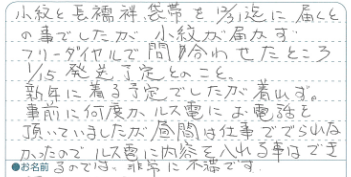 小紋と長襦袢、袋帯を12/31迄に届くと
の事でしたが、小紋が届かず
フリーダイヤルで問い合わせたところ
1/15発送予定とのこと。
新年に着る予定でしたが着れず。
事前に何度かルス電にお電話を
頂いていましたが昼間は仕事ででられな
かったのでルス電に内容を入れる事はでき
●お名前 るのでは、非常に不満です。